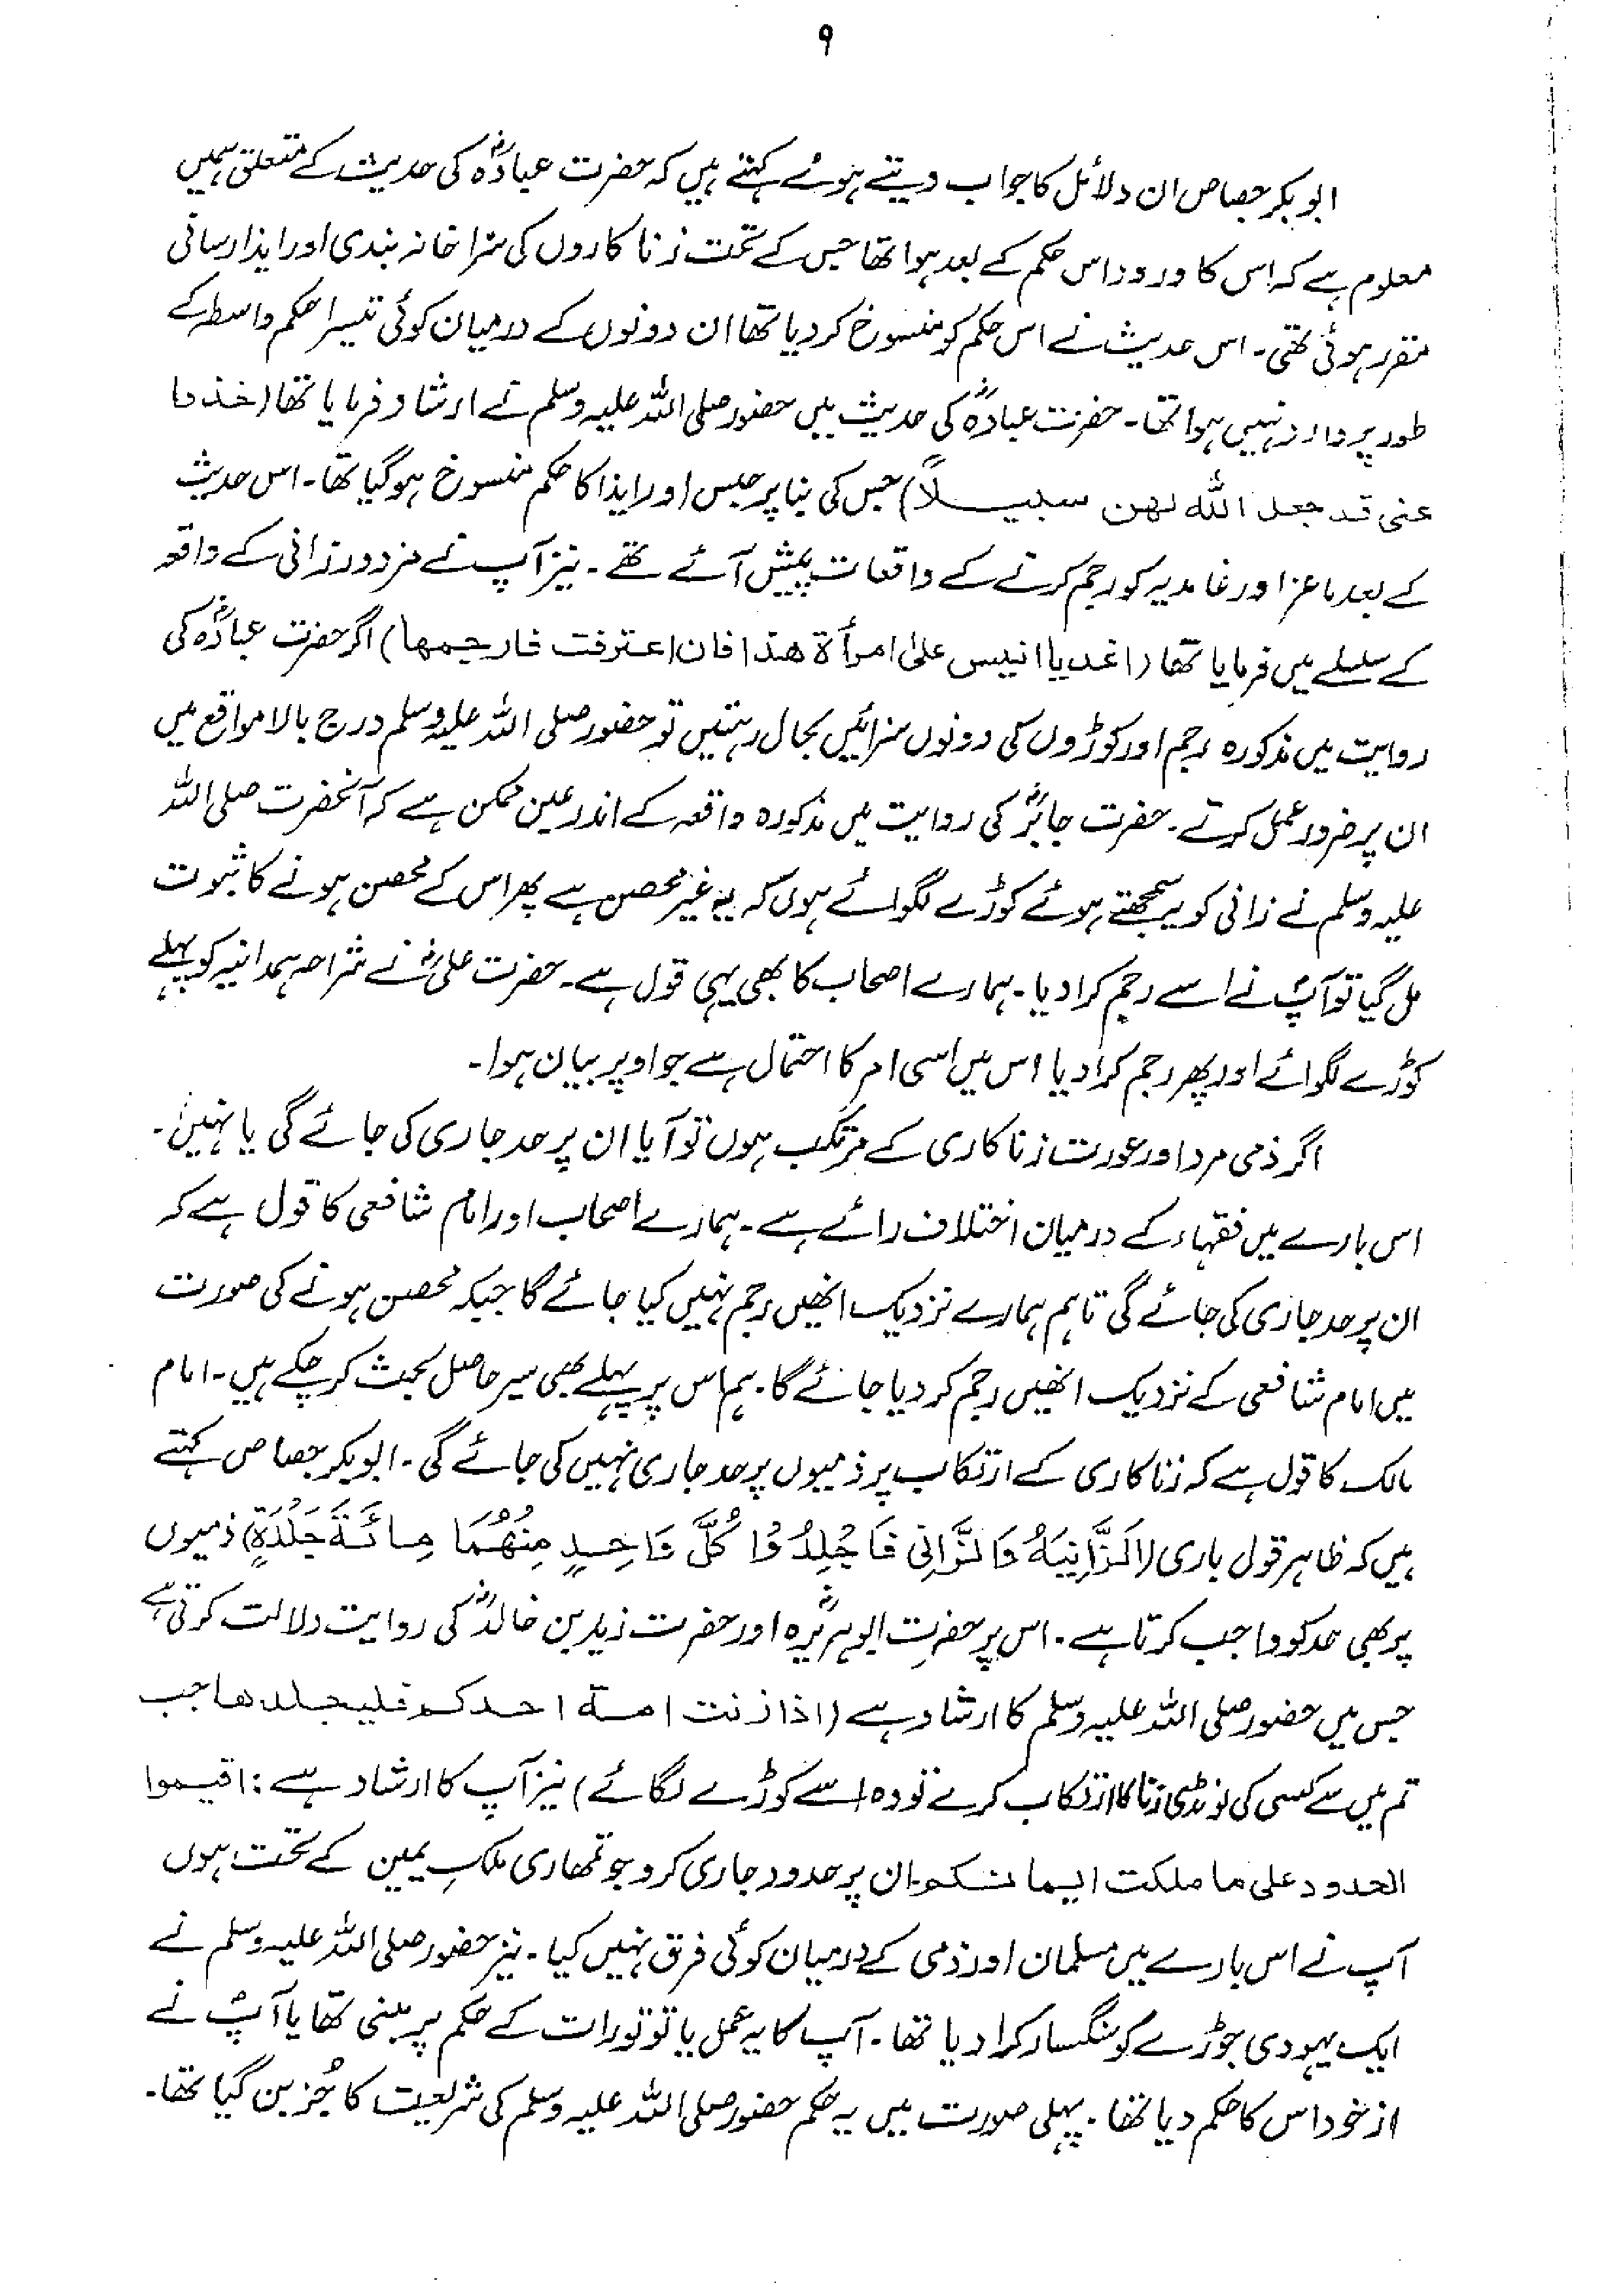 ۹
ابوبکر جصاص ان دلائل کا جواب دیتے ہوئے کہتے ہیں کہ حضرت عبادہؓ کی حدیث کے متعلق ہمیں
معلوم ہے کہ اس کا ورود اس حکم کے بعد ہوا تھا جس کے تحت زنا کاروں کی سزا خانہ بندی اور ایذا رسانی
مقرر ہوئی تھی۔ اس حدیث نے اس حکم کو منسوخ کر دیا تھا ان دونوں کے درمیان کوئی تیسرا حکم واسطہ کے
طور پر وارد نہیں ہوا تھا۔ حضرت عبادہؓ کی حدیث میں حضور صلی اللہ علیہ وسلم نے ارشاد فرمایا تھا (خذوا
عنی قد جعل اللہ لھن سبیلاً) جس کی بنا پر حبس اور ایذا کا حکم منسوخ ہو گیا تھا۔ اس حدیث
کے بعد ماعز اور غامدیہ کو رجم کرنے کے واقعات پیش آئے تھے۔ نیز آپ نے مزدور زانی کے واقعہ
کے سلسلے میں فرمایا تھا (اغد یا انیس علیٰ امرأۃ ھذا فان اعترفت فارجمھا) اگر حضرت عبادہؓ کی
روایت میں مذکورہ رجم اور کوڑوں کی دونوں سزائیں بحال رہتیں تو حضور صلی اللہ علیہ وسلم درج بالا مواقع میں
ان پر ضرور عمل کرتے۔ حضرت جابرؓ کی روایت میں مذکورہ واقعہ کے اندر عین ممکن ہے کہ آنحضرت صلی اللہ
علیہ وسلم نے زانی کو یہ سمجھتے ہوئے کوڑے لگوائے ہوں کہ یہ غیر محصن ہے پھر اس کے محصن ہونے کا ثبوت
مل گیا تو آپؐ نے اسے رجم کرا دیا۔ ہمارے اصحاب کا بھی یہی قول ہے۔ حضرت علیؓ نے شراحہ ہمدانیہ کو پہلے
کوڑے لگوائے اور پھر رجم کرا دیا اس میں اسی امر کا احتمال ہے جو اوپر بیان ہوا۔
اگر ذمی مرد اور عورت زنا کاری کے مرتکب ہوں تو آیا ان پر حد جاری کی جائے گی یا نہیں۔
اس بارے میں فقہاء کے درمیان اختلاف رائے ہے۔ ہمارے اصحاب اور امام شافعی کا قول ہے کہ
ان پر حد جاری کی جائے گی تاہم ہمارے نزدیک انھیں رجم نہیں کیا جائے گا جبکہ محصن ہونے کی صورت
میں امام شافعی کے نزدیک انھیں رجم کر دیا جائے گا۔ ہم اس پر پہلے بھی سیر حاصل بحث کر چکے ہیں۔ امام
مالک کا قول ہے کہ زنا کاری کے ارتکاب پر ذمیوں پر حد جاری نہیں کی جائے گی۔ ابوبکر جصاص کہتے
ہیں کہ ظاہر قول باری (اَلزَّانِیَۃُ وَالزَّانِی فَاجْلِدُوْا کُلَّ وَاحِدٍ مِنْھُمَا مِائَۃَ جَلْدَۃٍ) ذمیوں
پر بھی حد کو واجب کرتا ہے۔ اس پر حضرت ابوہریرہؓ اور حضرت زید بن خالدؓ کی روایت دلالت کرتی ہے
جس میں حضور صلی اللہ علیہ وسلم کا ارشاد ہے (اذا زنت امۃ احدکم فلیجلدھا جب
تم میں سے کسی کی لونڈی زنا کا ارتکاب کرے تو وہ اسے کوڑے لگائے) نیز آپ کا ارشاد ہے: اقیموا
الحدود علی ما ملکت ایمانکم ان پر حدود جاری کرو جو تمھاری ملکِ یمین کے تحت ہوں
آپ نے اس بارے میں مسلمان اور ذمی کے درمیان کوئی فرق نہیں کیا۔ نیز حضور صلی اللہ علیہ وسلم نے
ایک یہودی جوڑے کو سنگسار کرا دیا تھا۔ آپ کا یہ عمل یا تو تورات کے حکم پر مبنی تھا یا آپؐ نے
از خود اس کا حکم دیا تھا۔ پہلی صورت میں یہ حکم حضور صلی اللہ علیہ وسلم کی شریعت کا جُز بن گیا تھا۔